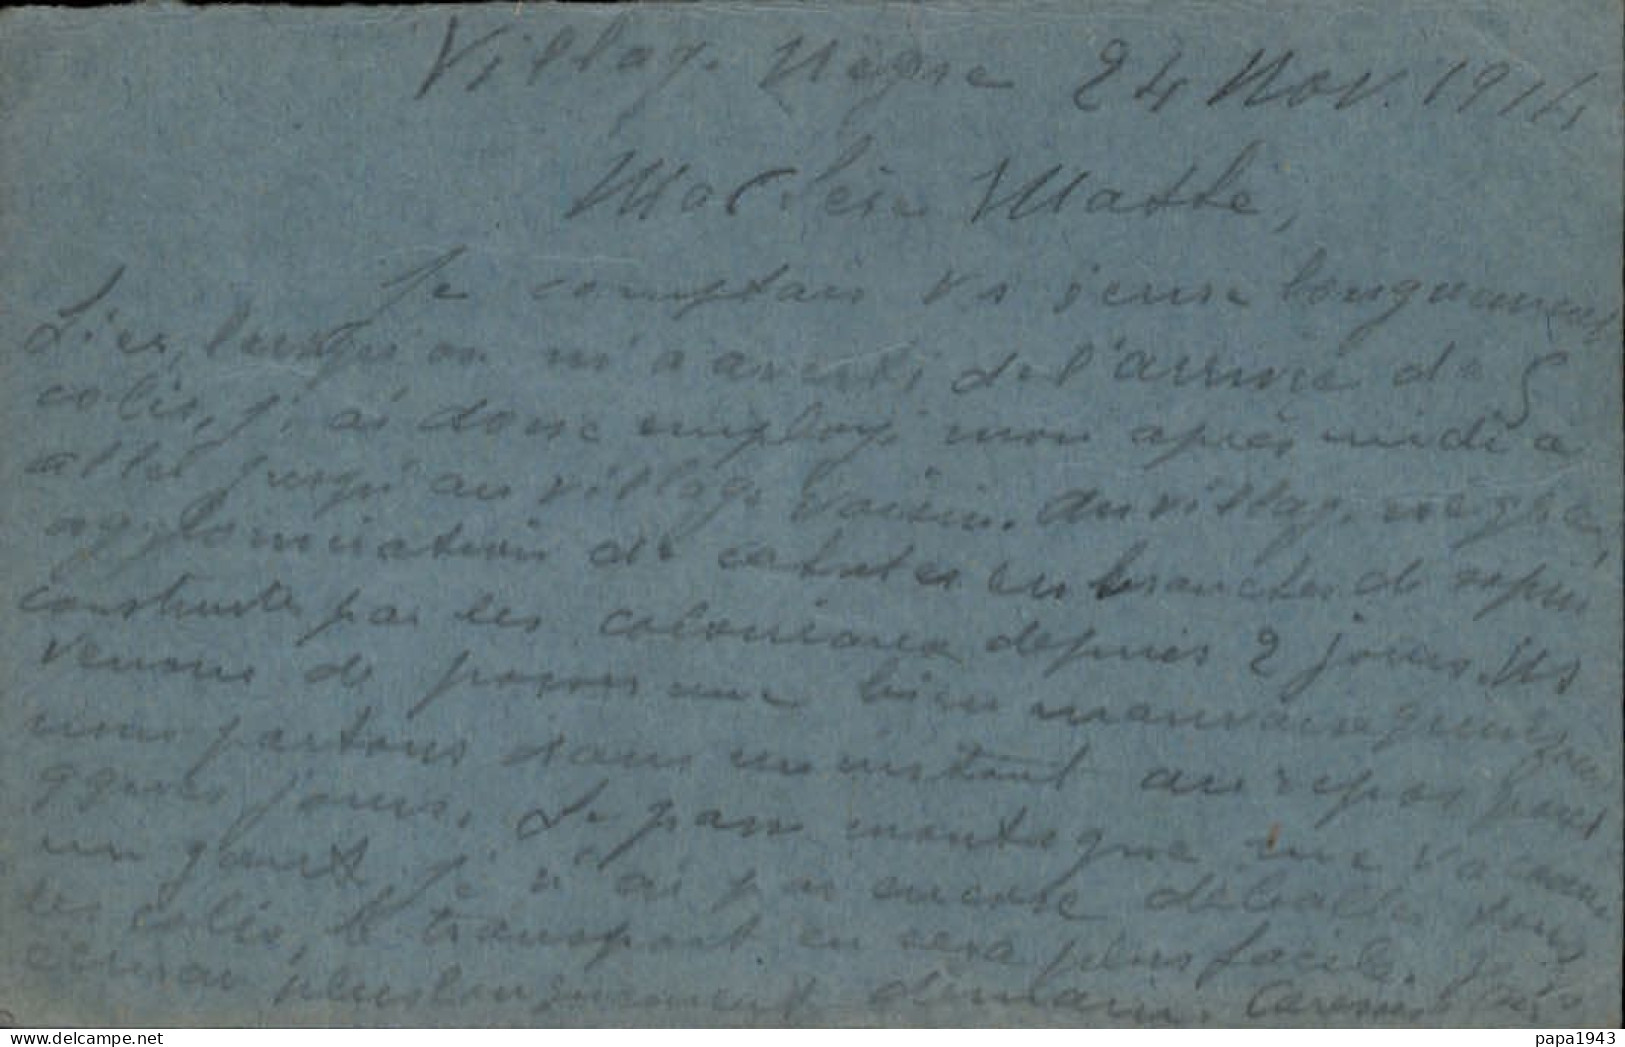 Village Nègre 24 Nov. 1914
Mathé,
Je comptais vs écrire longuement
hier, lorsqu'on m'a averti de l'arrivée de 5
colis, j'ai donc employé mon après midi à
aller jusqu'au village voisin. du village nègre,
agglomération de cahutes en branches de sapin
construites par les coloniaux depuis 2 jours. Ns
venons de passer une bien mauvaise
nous partons dans un instant au repos pour
qques jours. Le passe montagne me va comme
un gant, je n'ai pas encore déballé tous
les colis, le transport en sera plus facile. Je vs
écrirai plus longuement demain. Caresses
papa1943